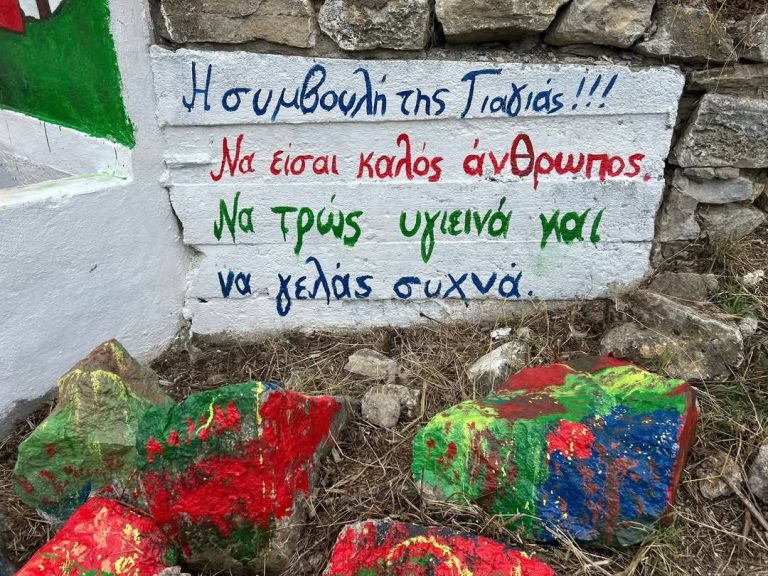 Η συμβουλή της Γιαγιάς!!!
Να είσαι καλός άνθρωπος.
Να τρώς υγιεινά και
να γελάς συχνά.